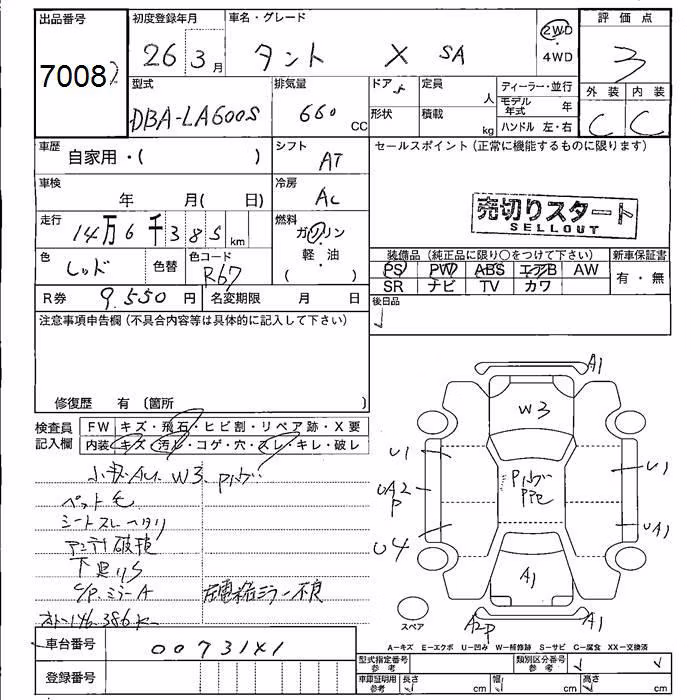 出品番号 初度登録年月 車名・グレード 評価点
7008 26 3月 タント X SA 2WD 4WD 3
型式 排気量 ドア 5 定員 人 ディーラー・並行 外装 内装
DBA-LA600S 660 CC 形状 積載 kg モデル年式 年 C C
ハンドル 左・右
車歴 自家用・( ) シフト AT セールスポイント(正常に機能するものに限ります)
車検 年 月( 日) 冷房 AC
売切りスタート
SELLOUT
走行 14万6千385km 燃料 ガソリン 軽・油 ( )
色 レッド 色替 色コード R67
装備品(純正品に限り○をつけて下さい) 新車保証書
PS PW ABS エアB AW 有・無
SR ナビ TV カワ
R券 9,550円 名変期限 月 日 後日品
注意事項申告欄(不具合内容等は具体的に記入して下さい)
修復歴 有 (箇所 )
検査員記入欄 FW キズ・飛石・ヒビ割・リペア跡・X要
内装 キズ・汚レ・コゲ・穴・スレ・キレ・破レ
W3
ペット毛
シートスレ ヘタリ
アンテナ破損
下廻りS
ミラーA 左電格ミラー不良
146,386
A1
W3
U1 U1
UA2 P
UA1
U4
A1
A2P A1
スペア
A-キズ E-エクボ U-凹み W-補修跡 S-サビ C-腐食 XX-交換済
車台番号 0073141
登録番号
型式指定番号参考 類別区分番号参考
車庫証明用参考 長さ cm 幅 cm 高さ cm